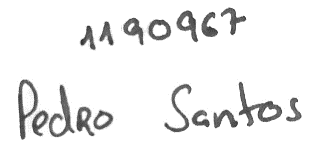 1190967
Pedro Santos